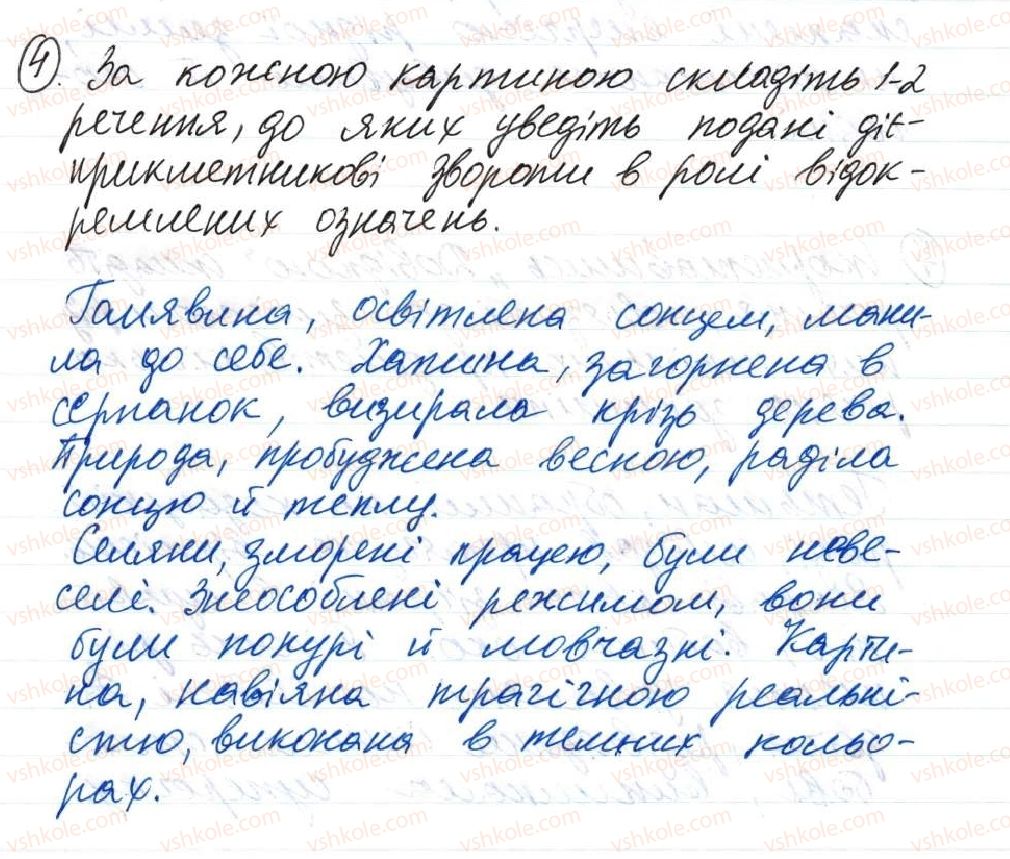 4. За кожною картиною складіть 1-2
речення, до яких уведіть подані діє-
прикметникові звороти в ролі відок-
ремлених означень.
Галявина, освітлена сонцем, мани-
ла до себе. Хатина, загорнена в
серпанок, визирала крізь дерева.
Природа, пробуджена весною, раділа
сонцю й теплу.
Селяни, зморені працею, були неве-
селі. Знеособлені режимом, вони
були понурі й мовчазні. Карти-
на, навіяна трагічною реальні-
стю, виконана в темних кольо-
рах.